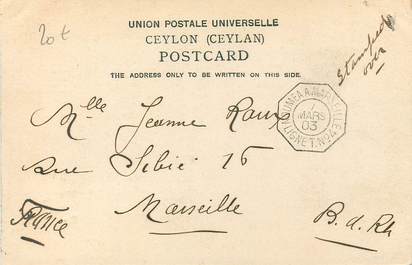 20 t
UNION POSTALE UNIVERSELLE
CEYLON (CEYLAN)
POSTCARD
THE ADDRESS ONLY TO BE WRITTEN ON THIS SIDE.
Stamped
over
NOUMEA A MARSEILLE
7
MARS
03
LIGNE T. Nº4
Mlle Jeanne Roux
rue Sibié 15
Marseille
France
B. d. Rh